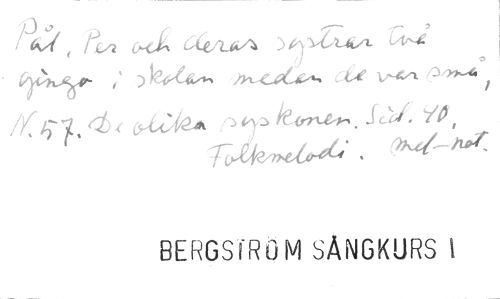 Pål, Per och deras systrar två
gingo i skolan medan de var små,
N. 57. De olika syskonen. Sid. 40.
Folkmelodi. mel-not.
BERGSTRÖM SÅNGKURS I